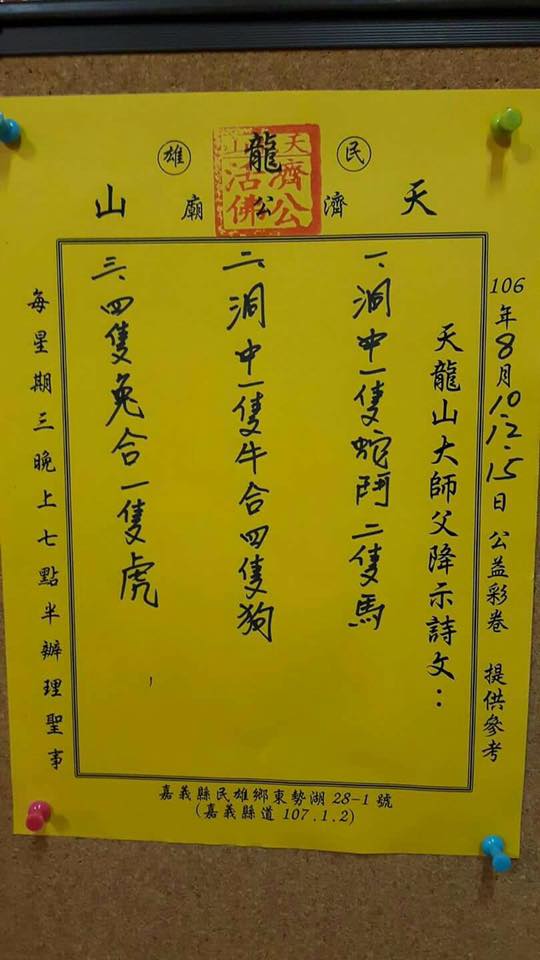 民雄
天龍山
濟公廟
天山
濟公
活佛
106年8月10.12.15日 公益彩卷 提供參考
天龍山大師父降示詩文：
一、洞中一隻蛇鬥二隻馬
二、洞中一隻牛合四隻狗
三、四隻兔合一隻虎
每星期三晚上七點半辦理聖事
嘉義縣民雄鄉東勢湖28-1號
(嘉義縣道107.1.2)